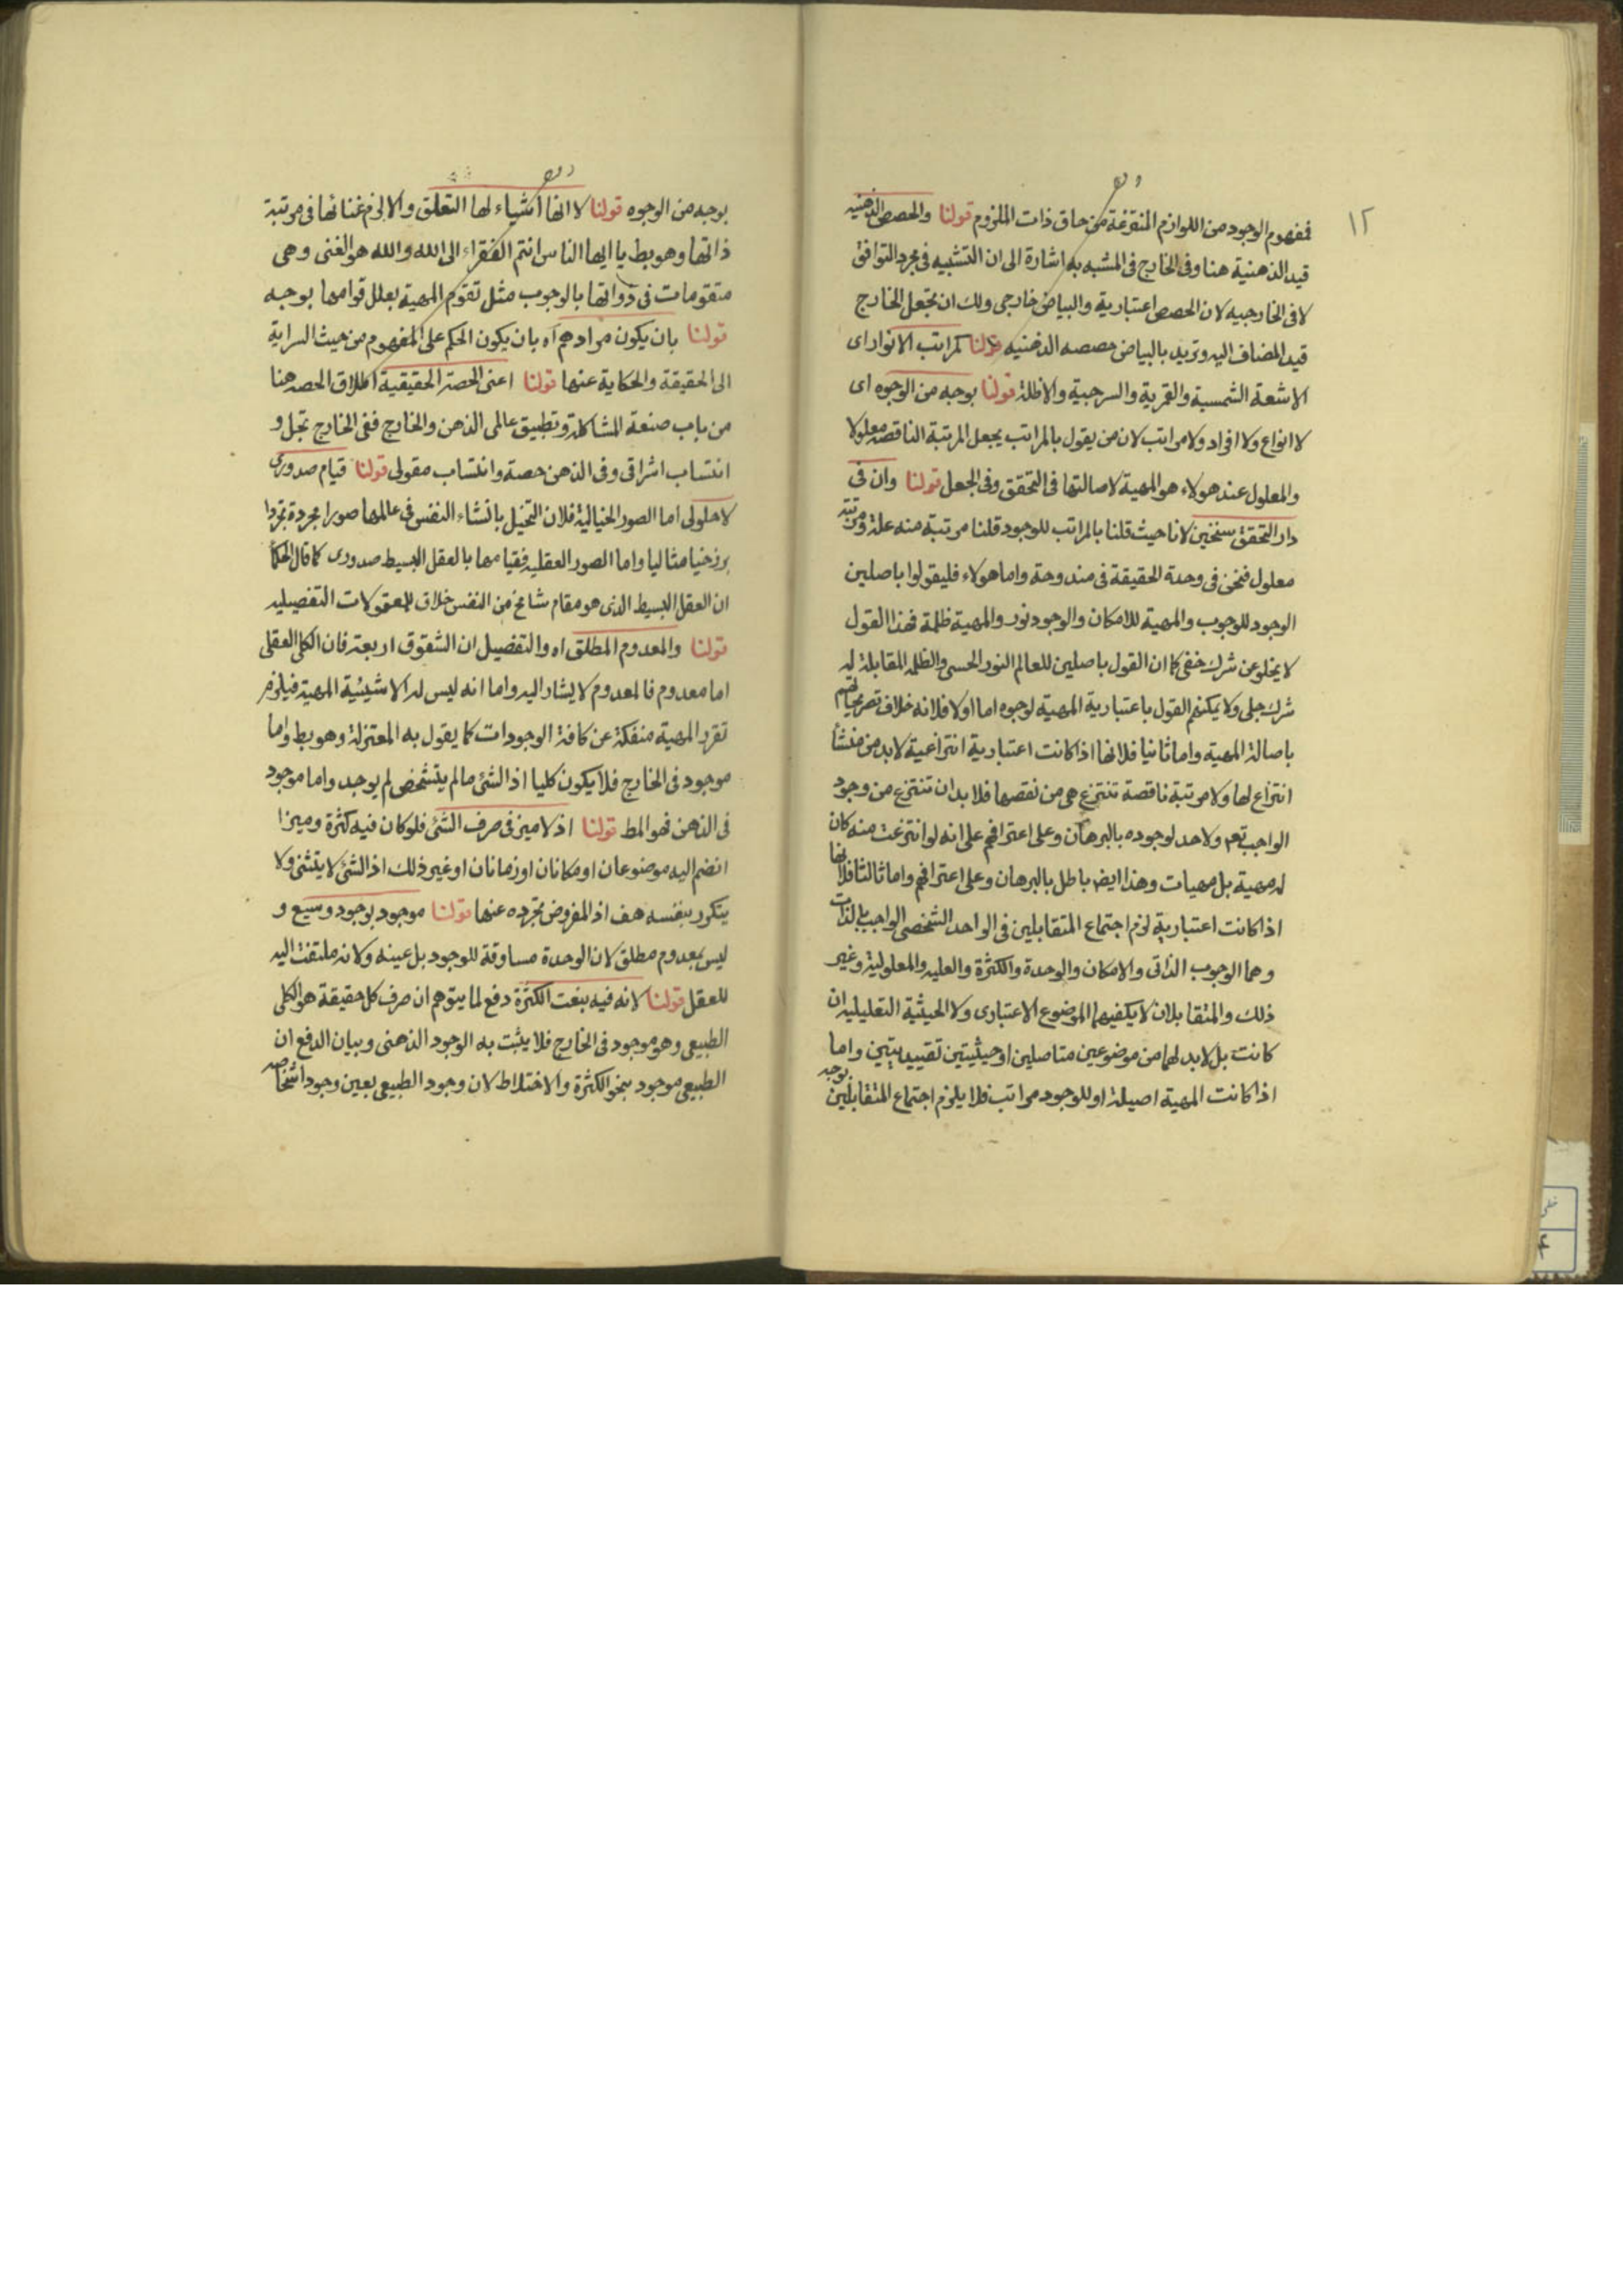 ١٢
فمفهوم الوجود من اللوازم المنتزعة من حاق ذات الملزوم قولنا والحصص الذهنيه
قيد الذهنية هنا وفى الخارج فى المشبه به اشارة الى ان التشبيه فى مجرد التوافق
لا فى الخارجيه لان الحصص اعتبارية والبياض خارجى ولك ان تجعل الخارج
قيد المضاف اليه وتريد بالبياض حصصه الذهنيه قولنا كمراتب الانوار اى
الاشعة الشمسية والقمرية والسرجية والاظلة قولنا بوجه من الوجوه اى
لا انواع ولا افراد ولا مراتب لان من يقول بالمراتب يجعل المرتبة الناقصه معلولا
والمعلول عند هولاء هو المهية لاصالتها فى التحقق وفى الجعل قولنا وان فى
دار التحقق سنخين لانا حيث قلنا بالمراتب للوجود قلنا مرتبة منه علة ومرتبة
معلول فنحن فى وحدة الحقيقة فى مندوحة واما هولاء فليقولوا باصلين
الوجود للوجوب والمهية للامكان والوجود نور والمهية ظلمة فهذا القول
لا يخلو عن شرك خفى كما ان القول باصلين للعالم النور الحسى والظلمه المقابلة له
شرك جلى ولا يمكنهم القول باعتبارية المهية لوجوه اما اولا فلانه خلاف تصريحاتهم
باصالة المهية واما ثانيا فلانها اذا كانت اعتبارية انتزاعية لا بد من منشأ
انتزاع لها ولا مرتبة ناقصة تنتزع هى من نقصها فلا بد ان تنتزع من وجود
الواجب تعم ولا حد لوجوده بالبرهان وعلى اعترافهم على انه لو انتزعت منه كان
له مهية بل مهيات وهذا ايض باطل بالبرهان وعلى اعترافهم واما ثالثا فلانها
اذا كانت اعتبارية لزم اجتماع المتقابلين فى الواحد الشخصى الواجب بالذات
وهما الوجوب الذاتى والامكان والوحدة والكثرة والعليه والمعلولية وغير
ذلك والمتقابلان لا يكفيهما الموضوع الاعتبارى ولا الحيثية التعليليه ان
كانت بل لا بد لهما من موضوعين متاصلين او حيثيتين تقييديتين واما
اذا كانت المهية اصيلة او للوجود مراتب فلا يلزم اجتماع المتقابلين بوجه
بوجه من الوجوه قولنا لا انها اشياء لها التعلق والا لزم غنائها فى مرتبة
ذاتها وهو بط يا ايها الناس انتم الفقراء الى الله والله هو الغنى وهى
متقومات فى ذواتها بالوجوب مثل تقوم المهية بعلل قوامها بوجه
قولنا بان يكون مرادهم اه بان يكون الحكم على المفهوم من حيث السراية
الى الحقيقة والحكاية عنها قولنا اعنى الحصة الحقيقية اطلاق الحصه هنا
من باب صنعة المشاكلة وتطبيق عالمى الذهن والخارج ففى الخارج تجل و
انتساب اشراقى وفى الذهن حصة وانتساب مقولى قولنا قيام صدورى
لا حلولى اما الصور الخيالية فلان التخيل بانشاء النفس فى عالمها صورا مجردة تجردا
برزخيا مثاليا واما الصور العقليه فقيامها بالعقل البسيط صدورى كما قال الحكما
ان العقل البسيط الذى هو مقام شامخ من النفس خلاق للمعقولات التفصيليه
قولنا والمعدوم المطلق اه والتفصيل ان الشقوق اربعة فان الكلى العقلى
اما معدوم فالمعدوم لا يشار اليه واما انه ليس له الا شيئية المهية فيلزم
تقرر المهية منفكة عن كافة الوجودات كما يقول به المعتزلة وهو بط واما
موجود فى الخارج فلا يكون كليا اذ الشئ ما لم يتشخص لم يوجد واما موجود
فى الذهن فهو المط قولنا اذ لا ميز فى صرف الشئ فلو كان فيه كثرة وميز ا
انضم اليه موضوعان او مكانان او زمانان او غير ذلك اذ الشئ لا يتثنى ولا
يتكرر بنفسه هف اذ المفروض تجرده عنها قولنا موجود بوجود وسيع و
ليس بمعدوم مطلق لان الوحدة مساوقة للوجود بل عينه ولانه ملتفت اليه
للعقل قولنا لانه فيه بنعت الكثرة دفع لما يتوهم ان صرف كل حقيقة هو الكلى
الطبيعى وهو موجود فى الخارج فلا يثبت به الوجود الذهنى وبيان الدفع ان
الطبيعى موجود بنحو الكثرة والاختلاط لان وجود الطبيعى بعين وجود اشخاصه